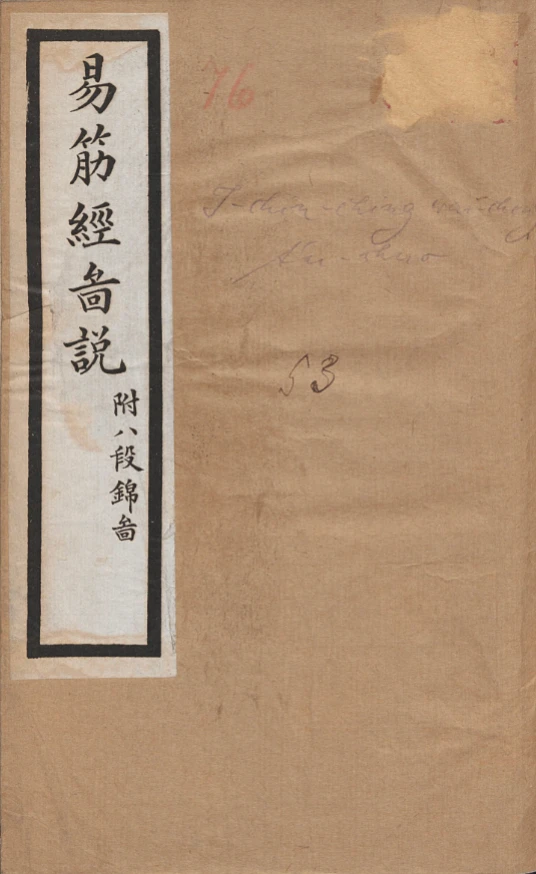 易筋經啚説
附八段錦啚
76
I-chin-ching
53